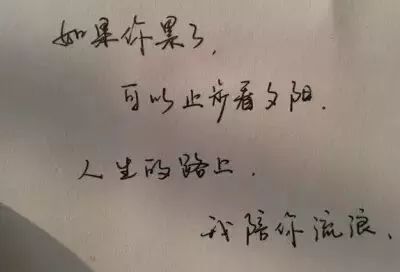 如果你累了，
可以止步看夕阳.
人生的路上.
我陪你流浪、